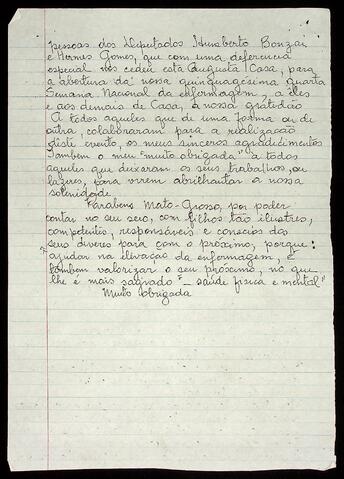 pessoas dos Deputados Humberto Bonzai
e Hermes Gomes, que com uma deferencia
especial nos cedeu esta Augusta Casa, para
a abertura da nossa quinquagésima quarta
Semana Nacional da Enfermagem, a eles
e aos demais da Casa, a nossa gratidão
A todos aqueles que de uma forma ou de
outra, colaboraram para a realização
deste evento, os meus sinceros agradicimentos
Também o meu "muito obrigada" a todos
aqueles que deixaram os seus trabalhos, ou
lazeres, para virem abrilhantar a nossa
solenidade.
Parabens Mato-Grosso, por poder
contar no seu seio, com filhos tão ilustres,
competentes, responsáveis e conscios dos
seus diveres para com o próximo, porque:
"ajudar na elevação da enfermagem, é
também valorizar o seu próximo, no que
lhe é mais sagrado" – saúde fisica e mental"
Muito Obrigada